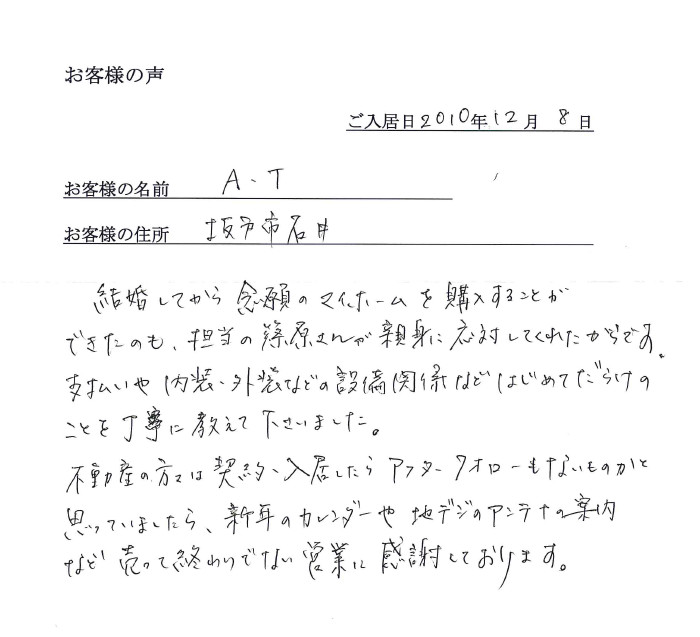 お客様の声
ご入居日2010年12月8日
お客様の名前 A.T
お客様の住所 坂戸市石井
結婚してから念願のマイホームを購入することが
できたのも、担当の篠原さんが親身に応対してくれたからです。
支払いや内装、外装などの設備関係などはじめてだらけの
ことを丁寧に教えて下さいました。
不動産の方々は契約、入居したらアフターフォローもないものかと
思っていましたら、新年のカレンダーや地デジのアンテナの案内
など売って終わりでない営業に感謝しております。